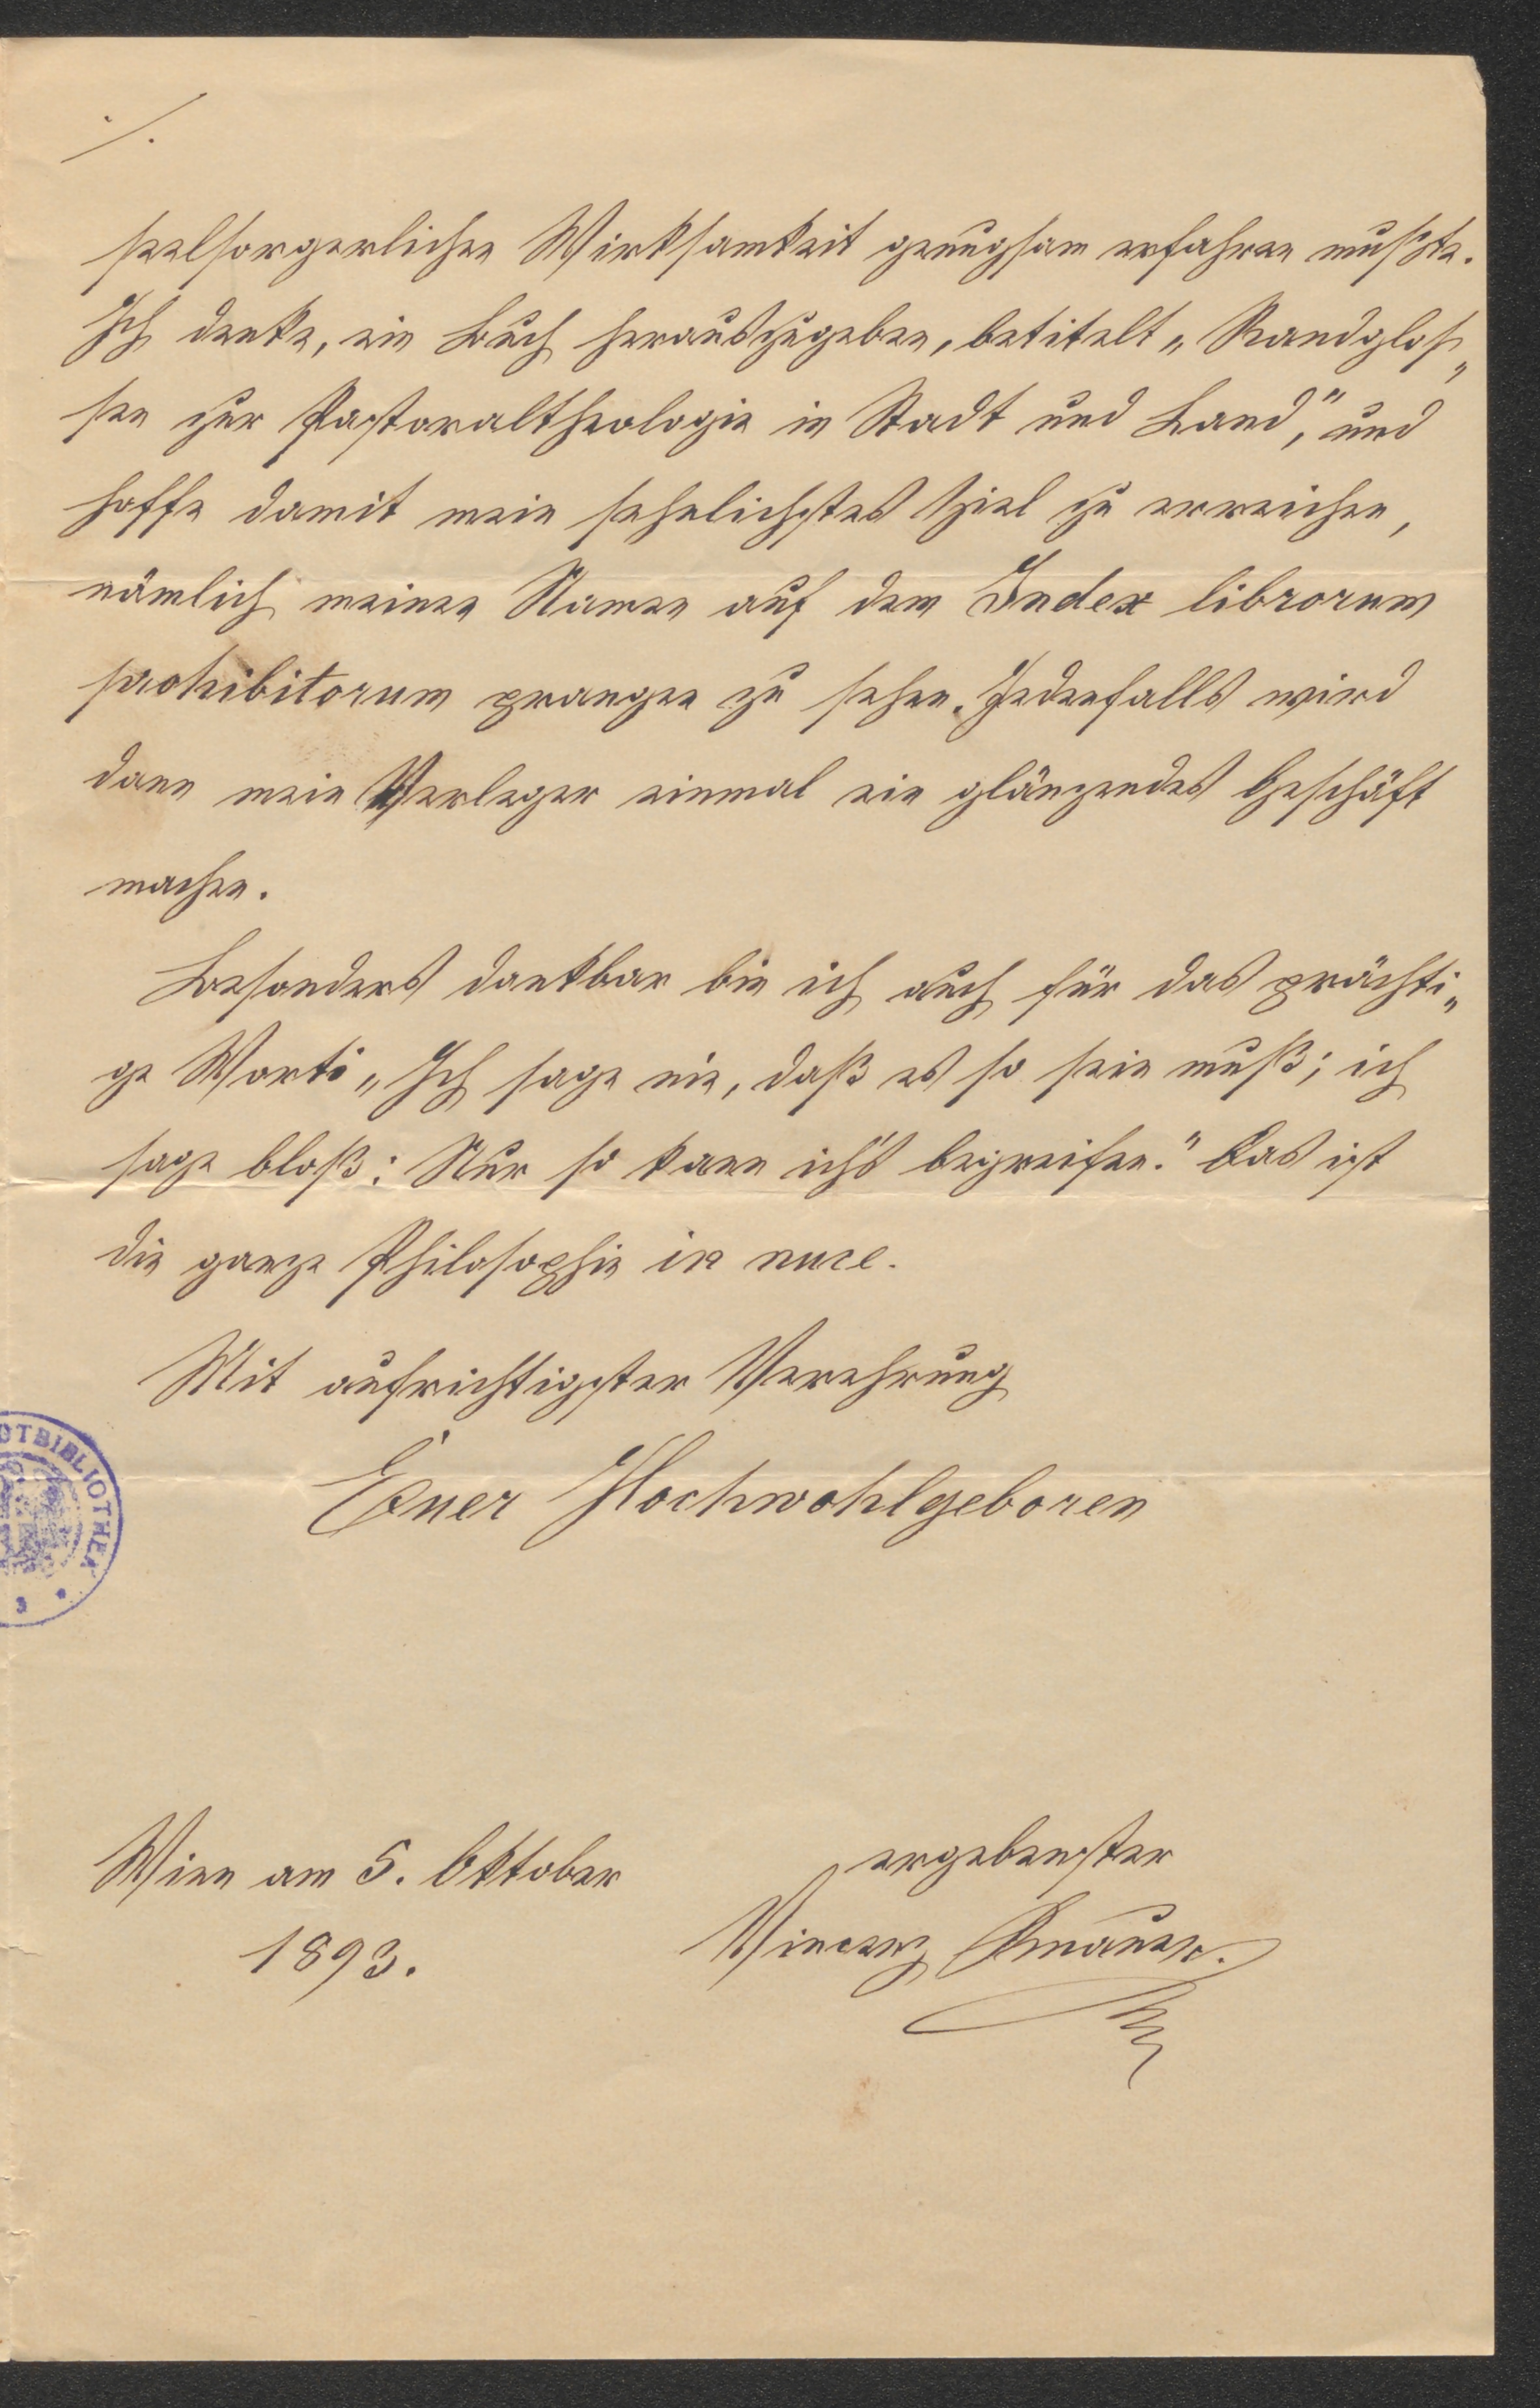 ./.
seelsorgerlichen Wirksamkeit genugsam erfahren mußte.
Ich denke, ein Buch herauszugeben, betitelt „Randglos„
sen zur Pastoraltheologie in Stadt und Land,“ und
hoffe damit mein sehnlichstes Ziel zu erreichen,
nämlich meinen Namen auf dem Index librorum
prohibitorum prangen zu sehen. Jedenfalls wird
dann mein Verleger einmal ein glänzendes Geschäft
machen.
Besonders dankbar bin ich auch für das prächti„
ge Wort: „Ich sage nie, daß es so sein muß; ich
sage bloß: Nur so kann ich's begreifen.“ Das ist
die ganze Philosophie in nuce.
Mit aufrichtigster Verehrung
Euer Hochwohlgeboren
DTBIBLIOTHEK
ergebenster
Wien am 5. Oktober
1893.
Vincenz Knauer.